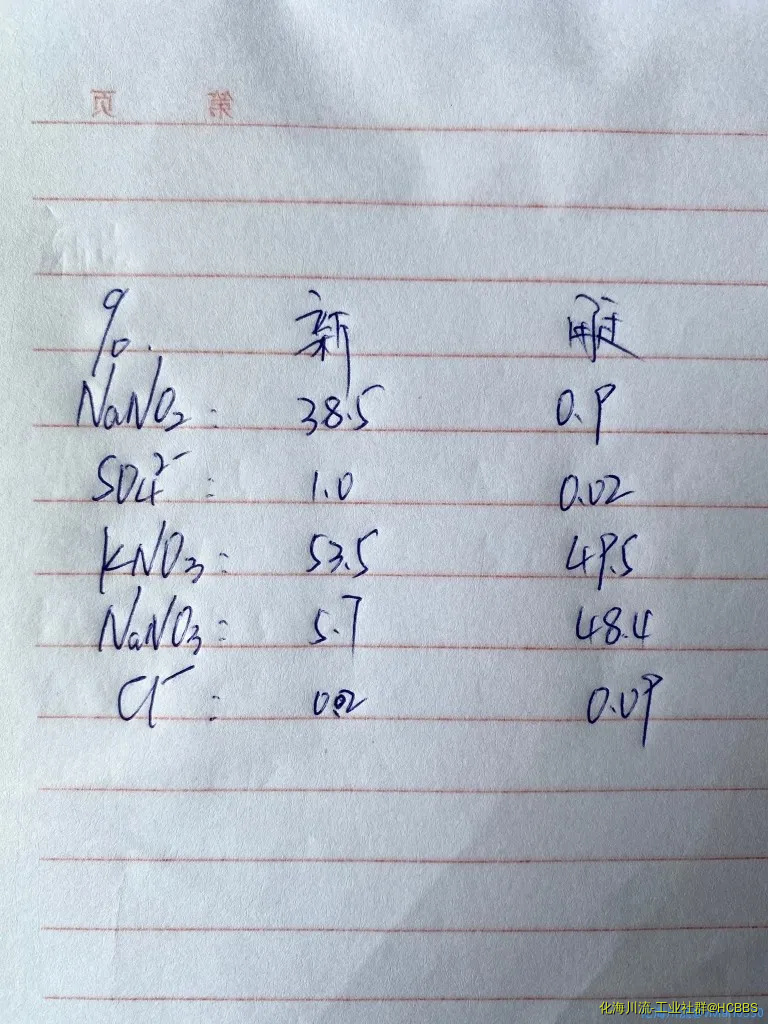 第 页
% 新 用过
NaNO₂: 38.5 0.9
SO₄²⁻: 1.0 0.02
KNO₃: 53.5 49.5
NaNO₃: 5.7 48.4
Cl⁻: 0.2 0.09
化海川流-工业社群@HCBBS